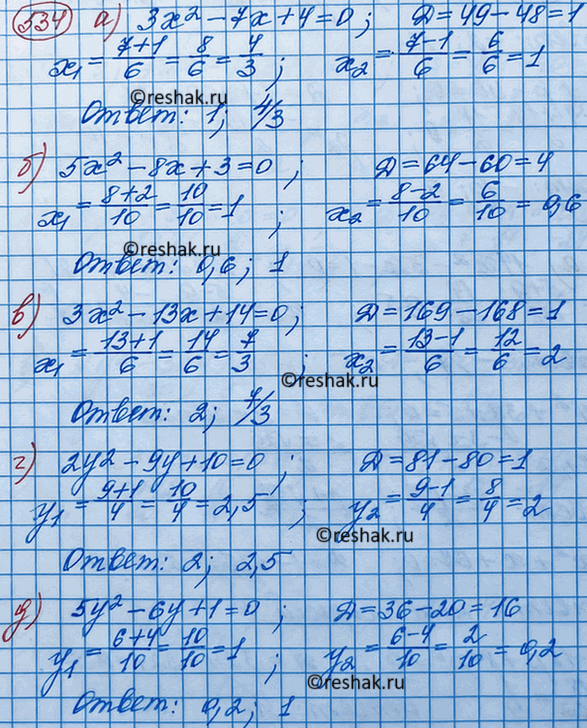 534 а) 3x² − 7x + 4 = 0; Д = 49 − 48 = 1
x₁ = (7+1)/6 = 8/6 = 4/3; x₂ = (7−1)/6 = 6/6 = 1
©reshak.ru
Ответ: 1; 4/3
б) 5x² − 8x + 3 = 0; Д = 64 − 60 = 4
x₁ = (8+2)/10 = 10/10 = 1; x₂ = (8−2)/10 = 6/10 = 0,6
©reshak.ru
Ответ: 0,6; 1
в) 3x² − 13x + 14 = 0; Д = 169 − 168 = 1
x₁ = (13+1)/6 = 14/6 = 7/3; x₂ = (13−1)/6 = 12/6 = 2
©reshak.ru
Ответ: 2; 7/3
г) 2y² − 9y + 10 = 0; Д = 81 − 80 = 1
y₁ = (9+1)/4 = 10/4 = 2,5; y₂ = (9−1)/4 = 8/4 = 2
©reshak.ru
Ответ: 2; 2,5
д) 5y² − 6y + 1 = 0; Д = 36 − 20 = 16
y₁ = (6+4)/10 = 10/10 = 1; y₂ = (6−4)/10 = 2/10 = 0,2
©reshak.ru
Ответ: 0,2; 1